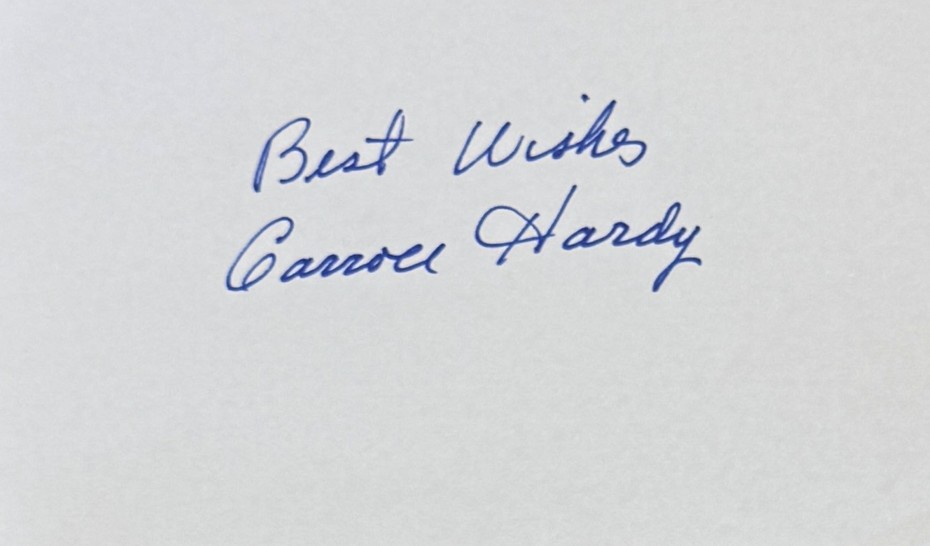 Best Wishes
Carroll Hardy